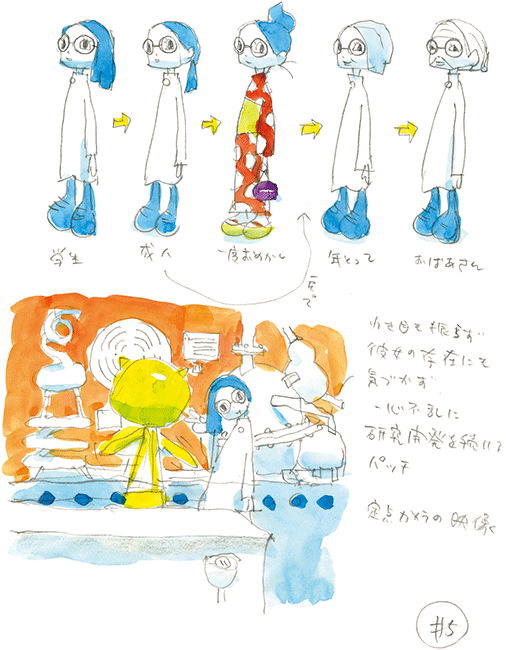 学生
成人
一度おめかし
年とって
おばあさん
一方で
わき目も振らず
彼女の存在にも
気づかず
一心不乱に
研究開発を続ける
パッチ
定点カメラの映像
#5